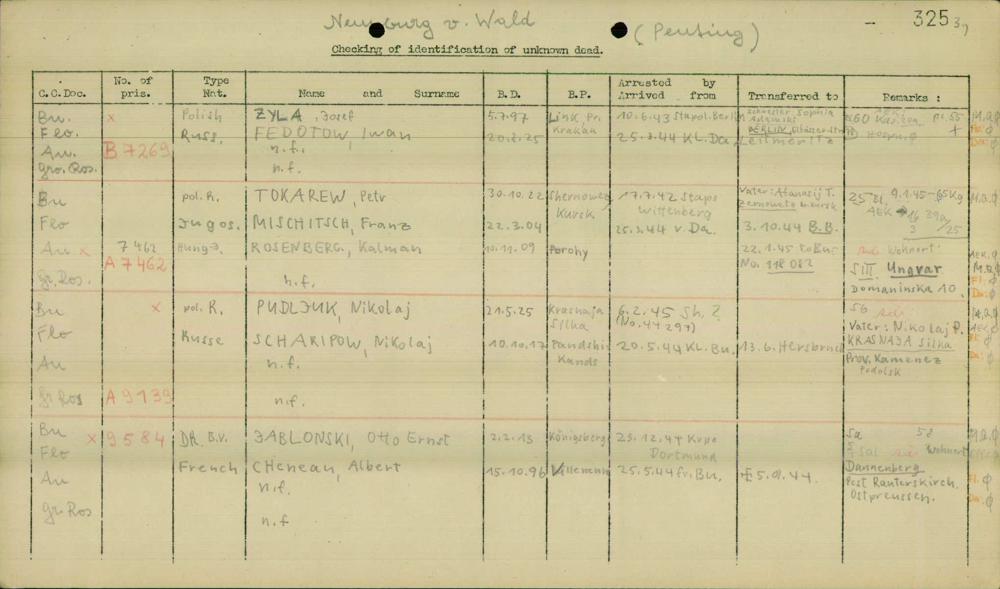 Neunburg v. Wald (Penting) - 325 37
Checking of identification of unknown dead.
C.C.Doc. No. of pris. Type Nat. Name and Surname B.D. B.P. Arrested by Arrived from Transferred to Remarks :
Bu. x Polish ZYLA, Josef 5.7.97 Link, Pr. Krakau 10.6.43 Stapol. Berlin Schwester: Sophia BERLIN
Flo. Russ. FEDOTOW, Iwan 20.2.25 25.3.44 KL. Da Leitmeritz
Au. B 7269 n.f.
gro. Ros. n.f.
Bu pol. R. TOKAREW, Petr 30.10.22 Kursk 17.7.42 Stapo Wittenberg Vater: Afanasij T. 9.1.45-65Kg
Flo Jugos. MISCHITSCH, Franz 22.3.04 25.3.44 v. Da. 3.10.44 B.B.
Au x 7462 A 7462 Hung. ROSENBERG, Kalman 10.11.09 Porohy 22.1.45 to Bu. No. 118 082 Wohnort: SIII Ungvar
gr. Ros. n.f. Domaninska 10.
Bu x pol. R. PUDLJUK, Nikolaj 21.5.25 Krasnaja Silka 6.2.45 Sh. ? (No. 44297) Vater: Nikolaj P.
Flo Russe SCHARIPOW, Nikolaj 10.10.17 Kands 20.5.44 KL. Bu. 13.6. Hersbruck KRASNAJA Silka
Au n.f. Prov. Kamenez Podolsk
gr Ros A 9139 n.f.
Bu x 9584 DR. B.V. JABLONSKI, Otto Ernst 2.2.13 Königsberg 23.12.44 Kripo Dortmund Sa 58 Wohnort
Flo French CHENEAU, Albert 15.10.96 25.5.44 fr. Bu. 5.9.44. Dannenberg
Au n.f. Post Rauterskirch.
gr. Ros n.f Ostpreussen.